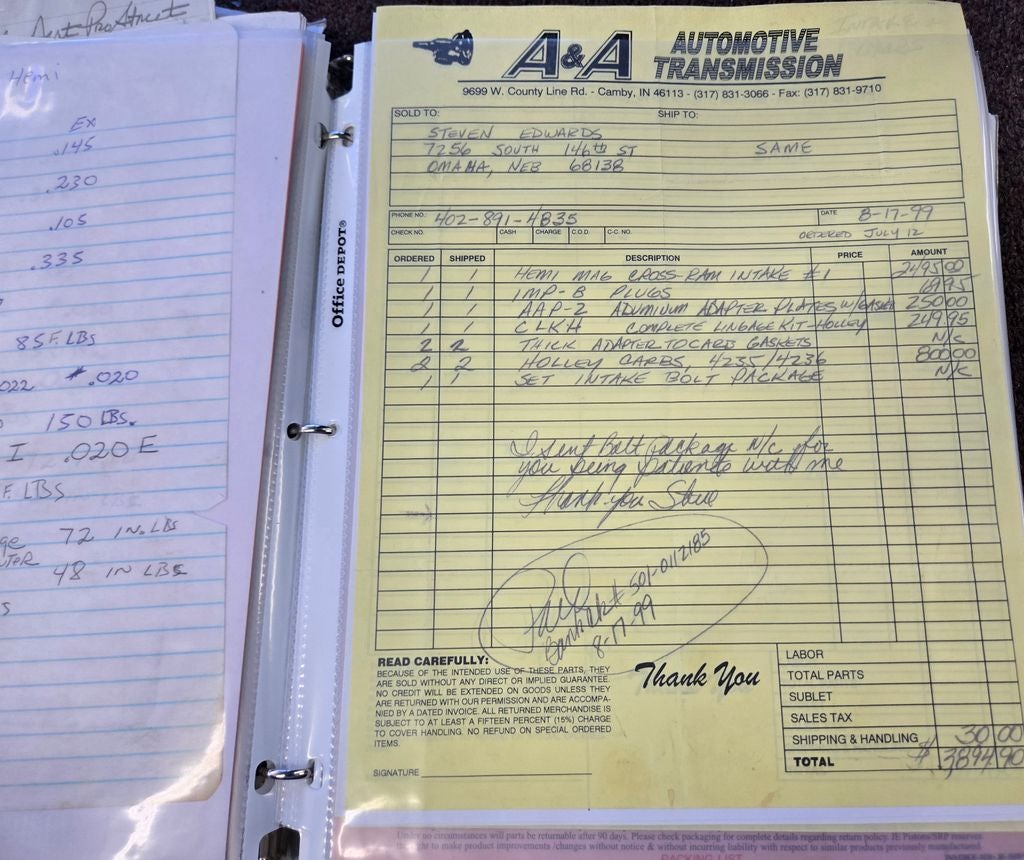 Dent ProStreet
Hemi
EX
.145
.230
.105
.335
85 F. LBS
022 # .020
150 LBS.
I .020 E
F. LBS
72 IN. LBS
48 IN LBS
S
Office DEPOT®
A&A AUTOMOTIVE TRANSMISSION
9699 W. County Line Rd. - Camby, IN 46113 - (317) 831-3066 - Fax: (317) 831-9710
SOLD TO: SHIP TO:
STEVEN EDWARDS
7256 SOUTH 146th ST SAME
OMAHA, NEB 68138
PHONE NO. 402-891-4835 DATE 8-17-99
CHECK NO. CASH CHARGE C.O.D. C.C. NO. ORDERED JULY 12
ORDERED SHIPPED DESCRIPTION PRICE AMOUNT
1 1 HEMI MAG CROSS-RAM INTAKE #1 2495 00
1 1 IMP-8 PLUGS 69 95
1 1 AAP-2 ALUMINUM ADAPTER PLATES W/GASKET 250 00
1 1 CLKH COMPLETE LINGAGE KIT-HOLLEY 249 95
2 2 THICK ADAPTER TO CARB GASKETS N/C
2 2 HOLLEY CARBS, 4235/4236 800 00
1 1 SET INTAKE BOLT PACKAGE N/C
I sent Bolt Package N/C for
you being patiente with me
Thank-you Steve
Paid
Bank ck # 501-0112185
8-17-99
READ CAREFULLY:
BECAUSE OF THE INTENDED USE OF THESE PARTS, THEY
ARE SOLD WITHOUT ANY DIRECT OR IMPLIED GUARANTEE.
NO CREDIT WILL BE EXTENDED ON GOODS UNLESS THEY
ARE RETURNED WITH OUR PERMISSION AND ARE ACCOMPA-
NIED BY A DATED INVOICE. ALL RETURNED MERCHANDISE IS
SUBJECT TO AT LEAST A FIFTEEN PERCENT (15%) CHARGE
TO COVER HANDLING. NO REFUND ON SPECIAL ORDERED
ITEMS.
SIGNATURE
Thank You
LABOR
TOTAL PARTS
SUBLET
SALES TAX
SHIPPING & HANDLING 30 00
TOTAL $ 3894 90
Under no circumstances will parts be returnable after 90 days. Please check packaging for complete details regarding return policy. JE Pistons/SRP reserves
to make product improvements /changes without notice & without incurring liability with respect to similar products previously manufactured.
PACKING LIST